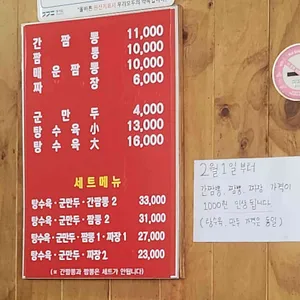 간 짬 뽕 11,000
짬 뽕 10,000
매 운 짬 뽕 10,000
짜 장 6,000
군 만 두 4,000
탕 수 육 小 13,000
탕 수 육 大 16,000
세트메뉴
탕수육·군만두·간짬뽕 2 33,000
탕수육·군만두·짬뽕 2 31,000
탕수육·군만두·짬뽕 1·짜장 1 27,000
탕수육·군만두·짜장 2 23,000
(※ 간짬뽕과 짬뽕은 세트가 안됩니다)
2월 1일 부터
간짬뽕, 짬뽕, 짜장 가격이
1000원 인상 됩니다
(탕수육, 만두 가격은 동일)